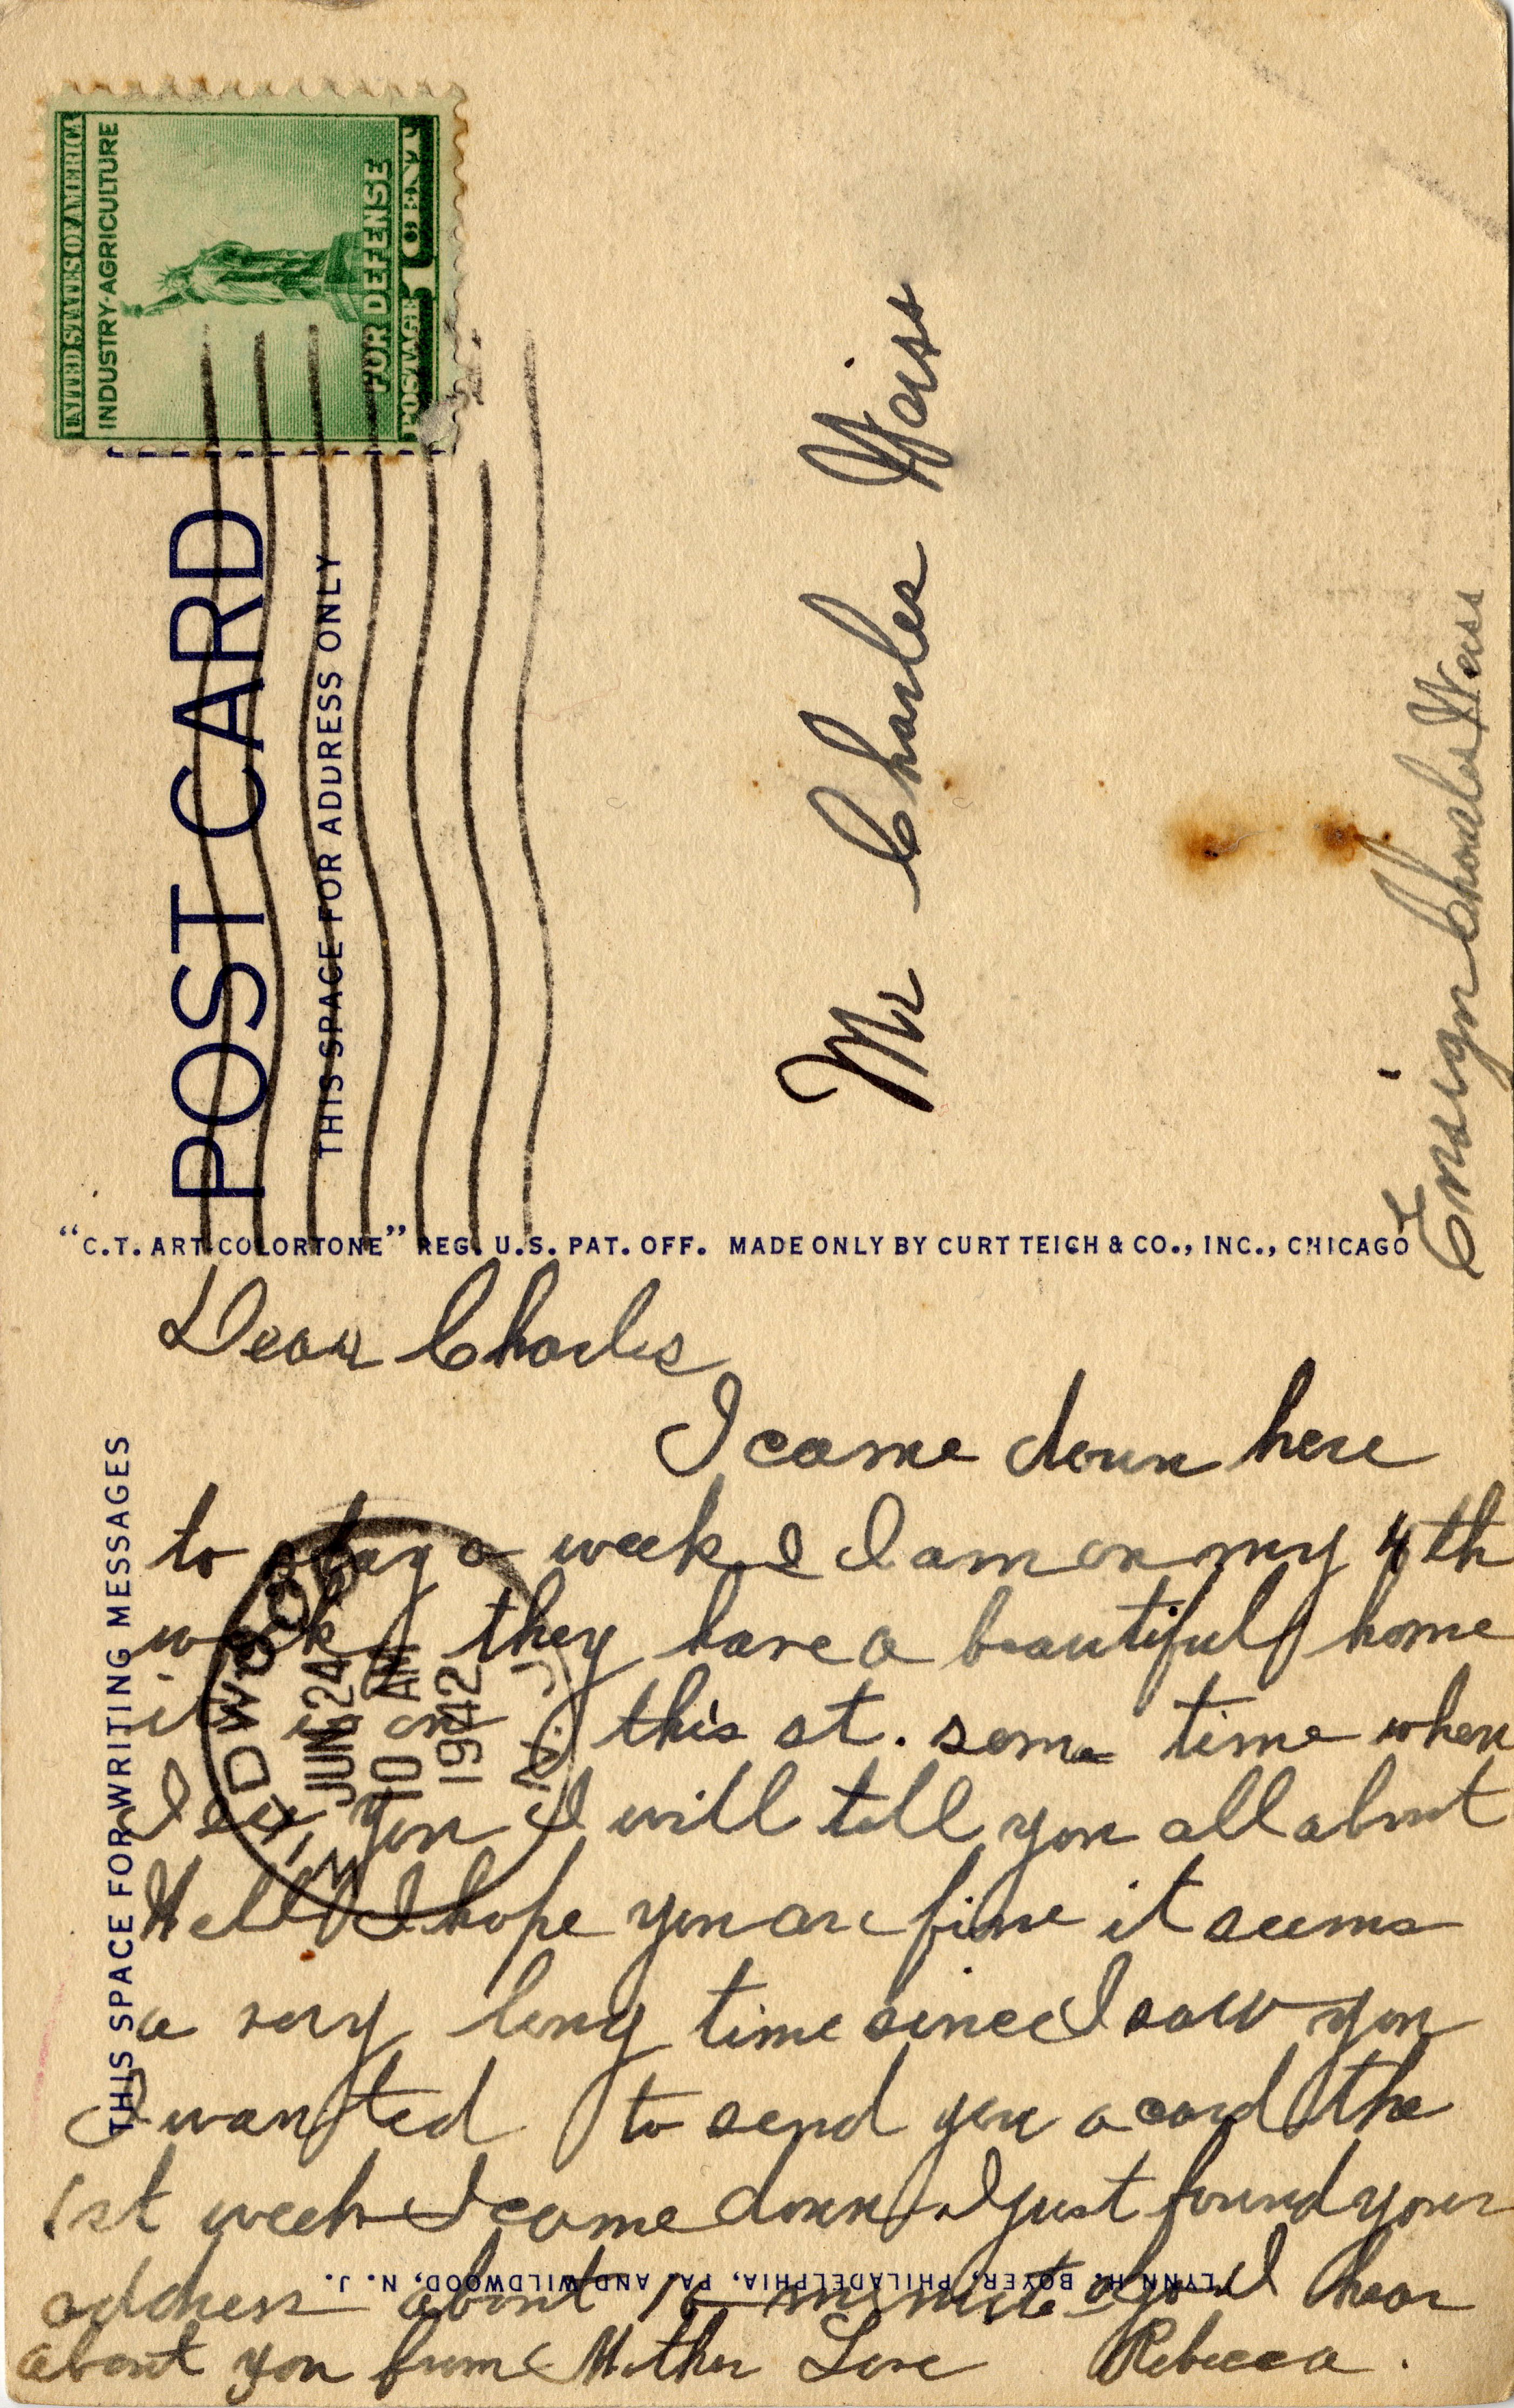 UNITED STATES OF AMERICA
INDUSTRY-AGRICULTURE
FOR DEFENSE
POSTAGE 1 CENT
POST CARD
THIS SPACE FOR ADDRESS ONLY
Mr Charles Weiss
Ensign Charles Weiss
"C.T. ART-COLORTONE" REG. U.S. PAT. OFF. MADE ONLY BY CURT TEICH & CO., INC., CHICAGO
THIS SPACE FOR WRITING MESSAGES
WILDWOOD
JUN 24
10 AM
1942
N.J.
Dear Charles
I came down here
to stay a week & I am on my 4th
week they have a beautiful home
it is on this st. some time when
I see you I will tell you all about
Well I hope you are fine it seems
a very long time since I saw you
I wanted to send you a card the
1st week I came down I just found your
address about 10 minute ago I hear
about you from Mother Love Rebecca.
LYNN H. BOYER, PHILADELPHIA, PA. AND WILDWOOD, N. J.